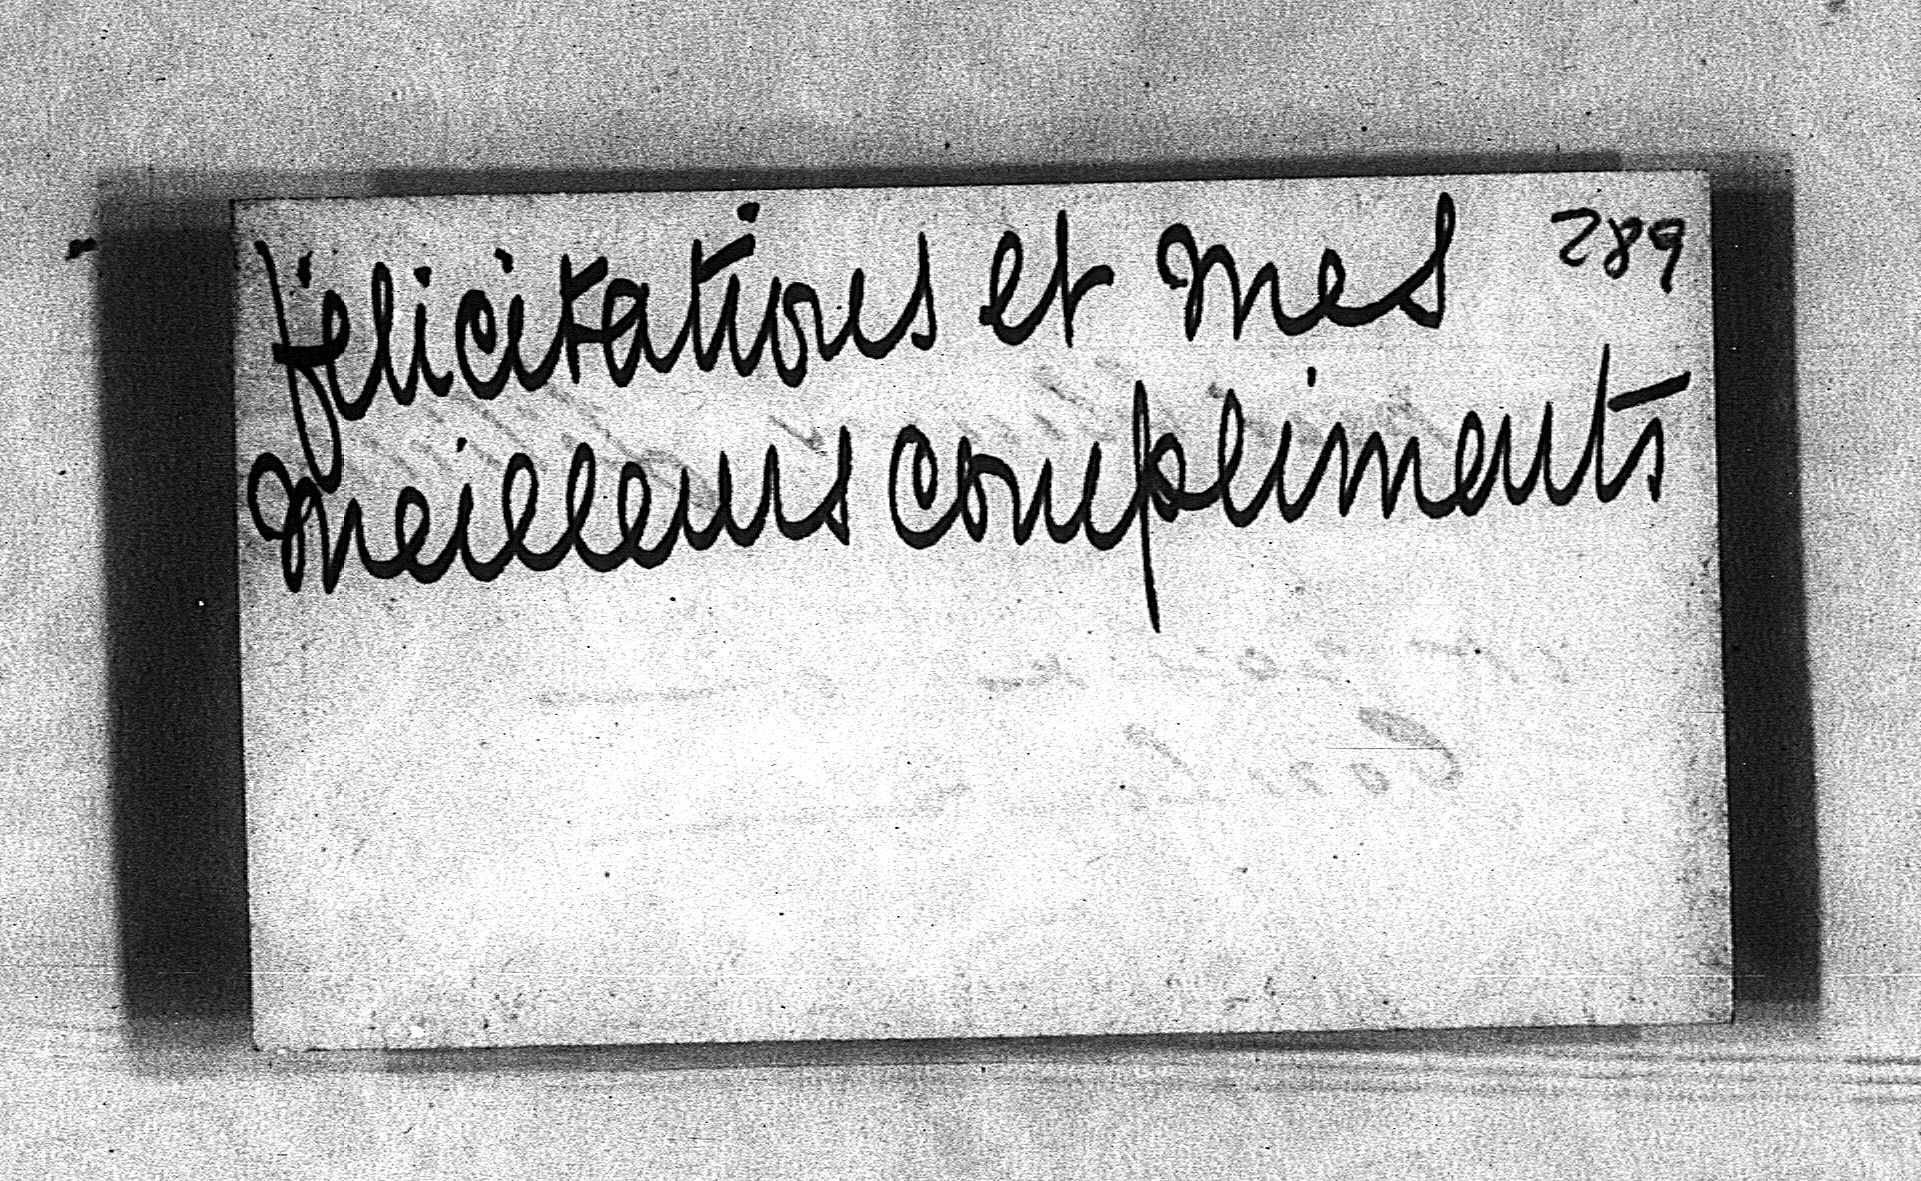 289
félicitations et mes
meilleurs compliments